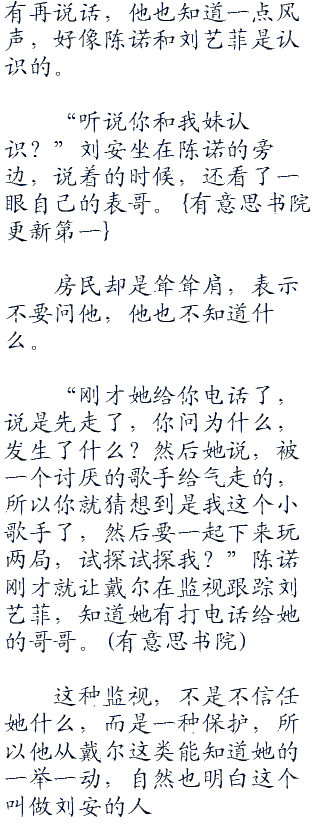 有再说话，他也知道一点风
声，好像陈诺和刘艺菲是认
识的。
“听说你和我妹认
识？”刘安坐在陈诺的旁
边，说着的时候，还看了一
眼自己的表哥。{有意思书院
更新第一}
房民却是耸耸肩，表示
不要问他，他也不知道什
么。
“刚才她给你电话了，
说是先走了，你问为什么，
发生了什么？然后她说，被
一个讨厌的歌手给气走的，
所以你就猜想到是我这个小
歌手了，然后要一起下来玩
两局，试探试探我？”陈诺
刚才就让戴尔在监视跟踪刘
艺菲，知道她有打电话给她
的哥哥。(有意思书院)
这种监视，不是不信任
她什么，而是一种保护，所
以他从戴尔这类能知道她的
一举一动，自然也明白这个
叫做刘安的人